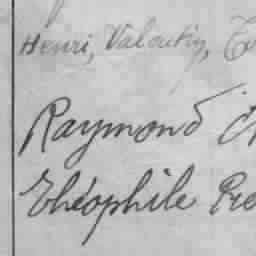 Henri, Valentin,
Raymond
Théophile